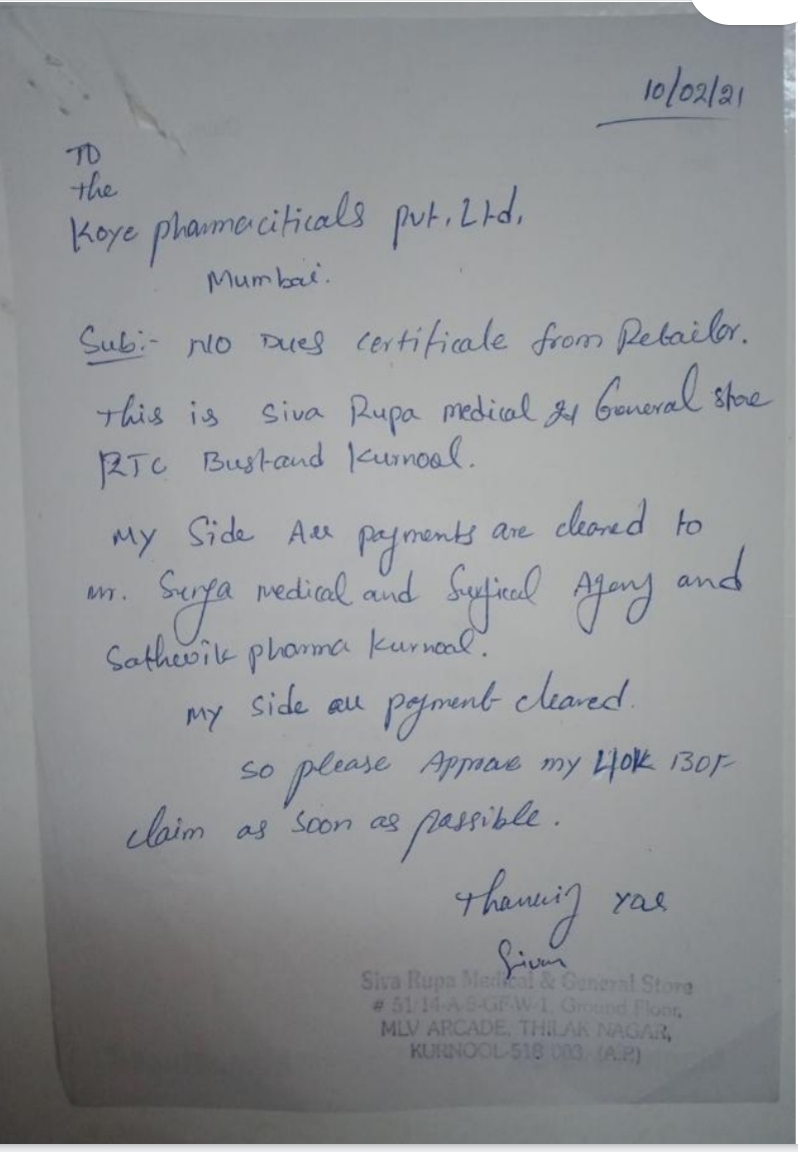 10/02/21
TO
the
Koye pharmaciticals pvt. Ltd.
Mumbai.
Sub:- NO Dues certificate from Retailor.
This is Siva Rupa medical & General store
RTC Bustand Kurnool.
My Side All payments are cleared to
Mr. Surya medical and Surfical Ageny and
Sathwik pharma Kurnool.
My side all payment cleared.
so please Approve my 40K BOF
claim as soon as passible.
Siva
Siva Rupa Medical & General Store
# 51/14-A-5-GF-W-1, Ground Floor,
MLV ARCADE, THILAK NAGAR,
KURNOOL-518 003. (A.P.)